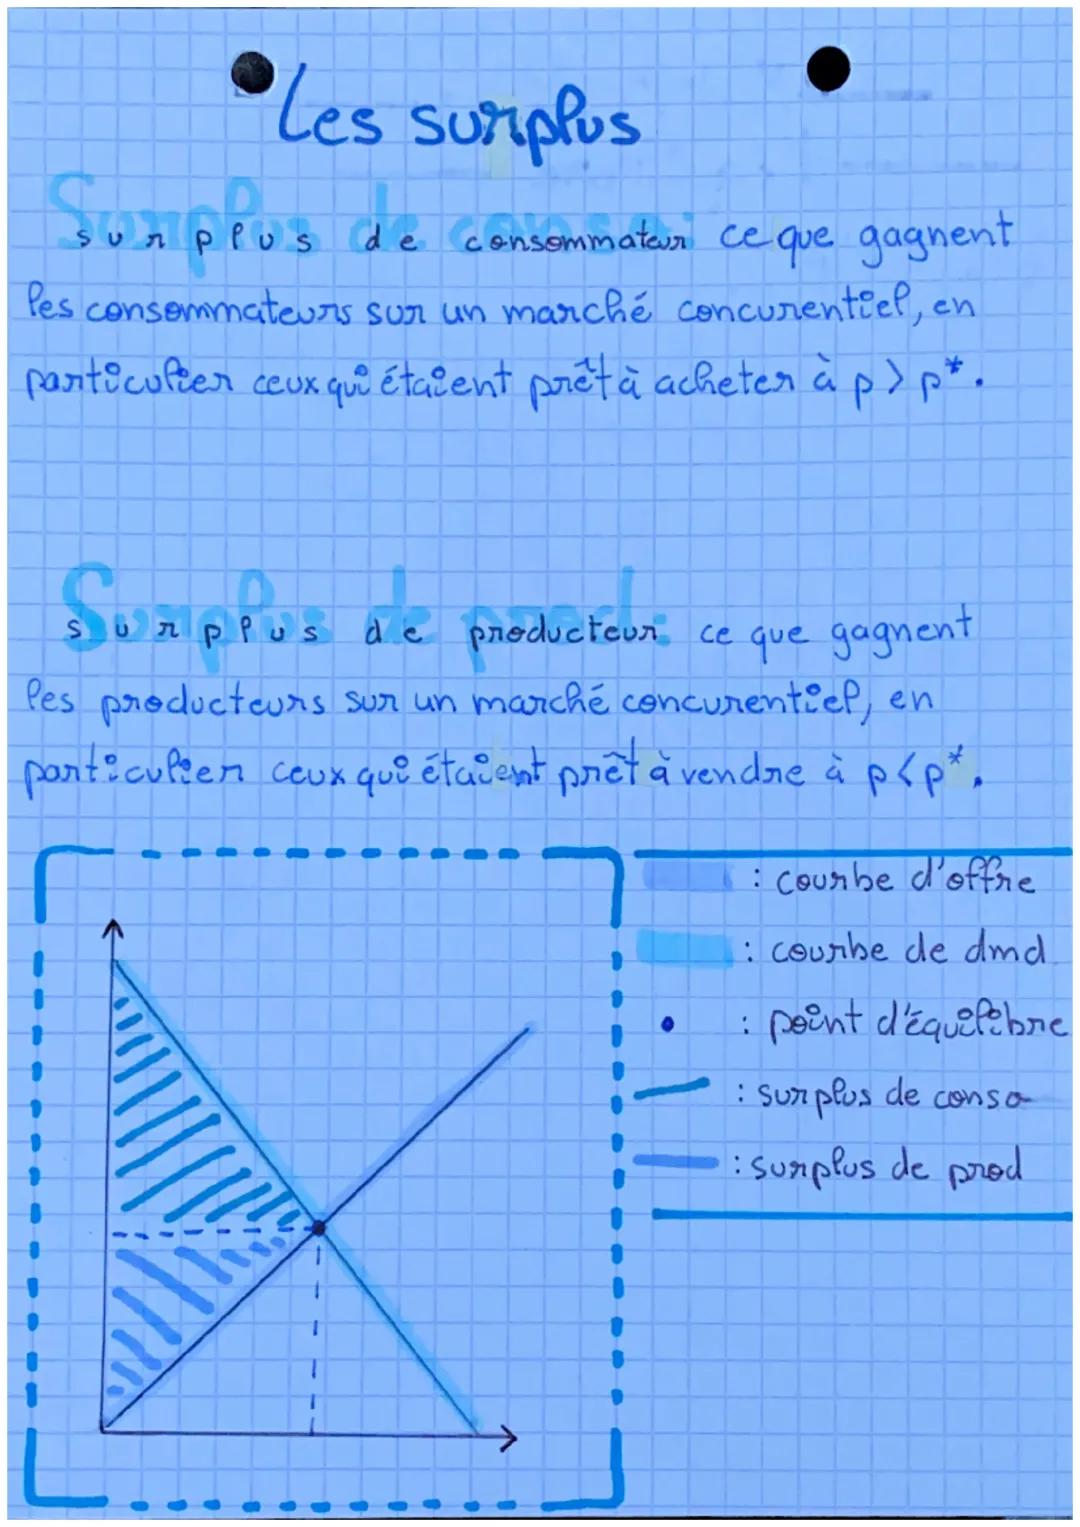 Les surplus
Surplus de conso:
surplus de consommateur ce que gagnent
les consommateurs sur un marché concurentiel, en
particulier ceux qui étaient prêt à acheter à p > p*.
Surplus de prod:
surplus de producteur ce que gagnent
les producteurs sur un marché concurentiel, en
particulier ceux qui étaient prêt à vendre à p < p*.
: courbe d'offre
: courbe de dmd
: point d'équilibre
: surplus de conso
: surplus de prod